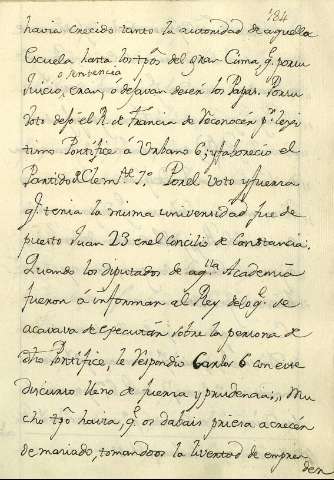 184
havia crecido tanto la autoridad de aquella
Escuela hasta los tpõs del gran Cisma, q̃. por su
Juicio, o sentencia eran, o dejavan de ser los Papas. Por su
voto dejó el R. de Francia de reconocer pr. legi
timo Pontifice á Urbano 6; y faborecio el
Partido de Clemte. 7º. Por el voto y fuerza
q̃. tenia la misma universidad fue de
puesto Juan 23 en el Concilio de Constancia.
Quando los diputados de aqlla. Academia
fueron á informar al Rey de lo q̃. se
acavava de executar sobre la persona de
dho Pontifice, le respondio Carlos 6 con este
discurso lleno de fuerza y prudencia: Mu
cho tpõ havia, q̃. os dabais priesa a crecer
demasiado, tomandoos la livertad de empren
der